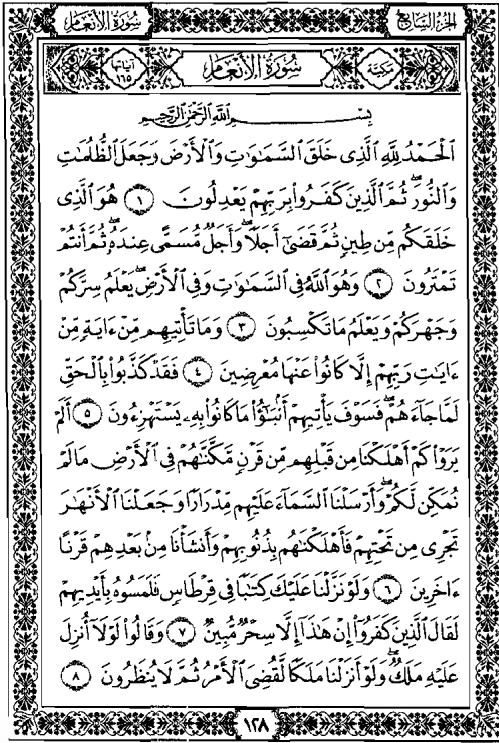 الجزء السابع
سورة الأنعام
مكية
سورة الأنعام
آياتها ١٦٥
بِسْمِ اللَّهِ الرَّحْمَٰنِ الرَّحِيمِ
الْحَمْدُ لِلَّهِ الَّذِي خَلَقَ السَّمَاوَاتِ وَالْأَرْضَ وَجَعَلَ الظُّلُمَاتِ
وَالنُّورَ ۖ ثُمَّ الَّذِينَ كَفَرُوا بِرَبِّهِمْ يَعْدِلُونَ ١ هُوَ الَّذِي
خَلَقَكُم مِّن طِينٍ ثُمَّ قَضَىٰ أَجَلًا ۖ وَأَجَلٌ مُّسَمًّى عِندَهُ ۖ ثُمَّ أَنتُمْ
تَمْتَرُونَ ٢ وَهُوَ اللَّهُ فِي السَّمَاوَاتِ وَفِي الْأَرْضِ ۖ يَعْلَمُ سِرَّكُمْ
وَجَهْرَكُمْ وَيَعْلَمُ مَا تَكْسِبُونَ ٣ وَمَا تَأْتِيهِم مِّنْ ءَايَةٍ مِّنْ
ءَايَاتِ رَبِّهِمْ إِلَّا كَانُوا عَنْهَا مُعْرِضِينَ ٤ فَقَدْ كَذَّبُوا بِالْحَقِّ
لَمَّا جَاءَهُمْ ۖ فَسَوْفَ يَأْتِيهِمْ أَنبَٰٓؤُا مَا كَانُوا بِهِ يَسْتَهْزِءُونَ ٥ أَلَمْ
يَرَوْا كَمْ أَهْلَكْنَا مِن قَبْلِهِم مِّن قَرْنٍ مَّكَّنَّاهُمْ فِي الْأَرْضِ مَا لَمْ
نُمَكِّن لَّكُمْ وَأَرْسَلْنَا السَّمَاءَ عَلَيْهِم مِّدْرَارًا وَجَعَلْنَا الْأَنْهَارَ
تَجْرِي مِن تَحْتِهِمْ فَأَهْلَكْنَاهُم بِذُنُوبِهِمْ وَأَنشَأْنَا مِنْ بَعْدِهِمْ قَرْنًا
ءَاخَرِينَ ٦ وَلَوْ نَزَّلْنَا عَلَيْكَ كِتَابًا فِي قِرْطَاسٍ فَلَمَسُوهُ بِأَيْدِيهِمْ
لَقَالَ الَّذِينَ كَفَرُوا إِنْ هَٰذَا إِلَّا سِحْرٌ مُّبِينٌ ٧ وَقَالُوا لَوْلَا أُنزِلَ
عَلَيْهِ مَلَكٌ ۖ وَلَوْ أَنزَلْنَا مَلَكًا لَّقُضِيَ الْأَمْرُ ثُمَّ لَا يُنظَرُونَ ٨
١٢٨